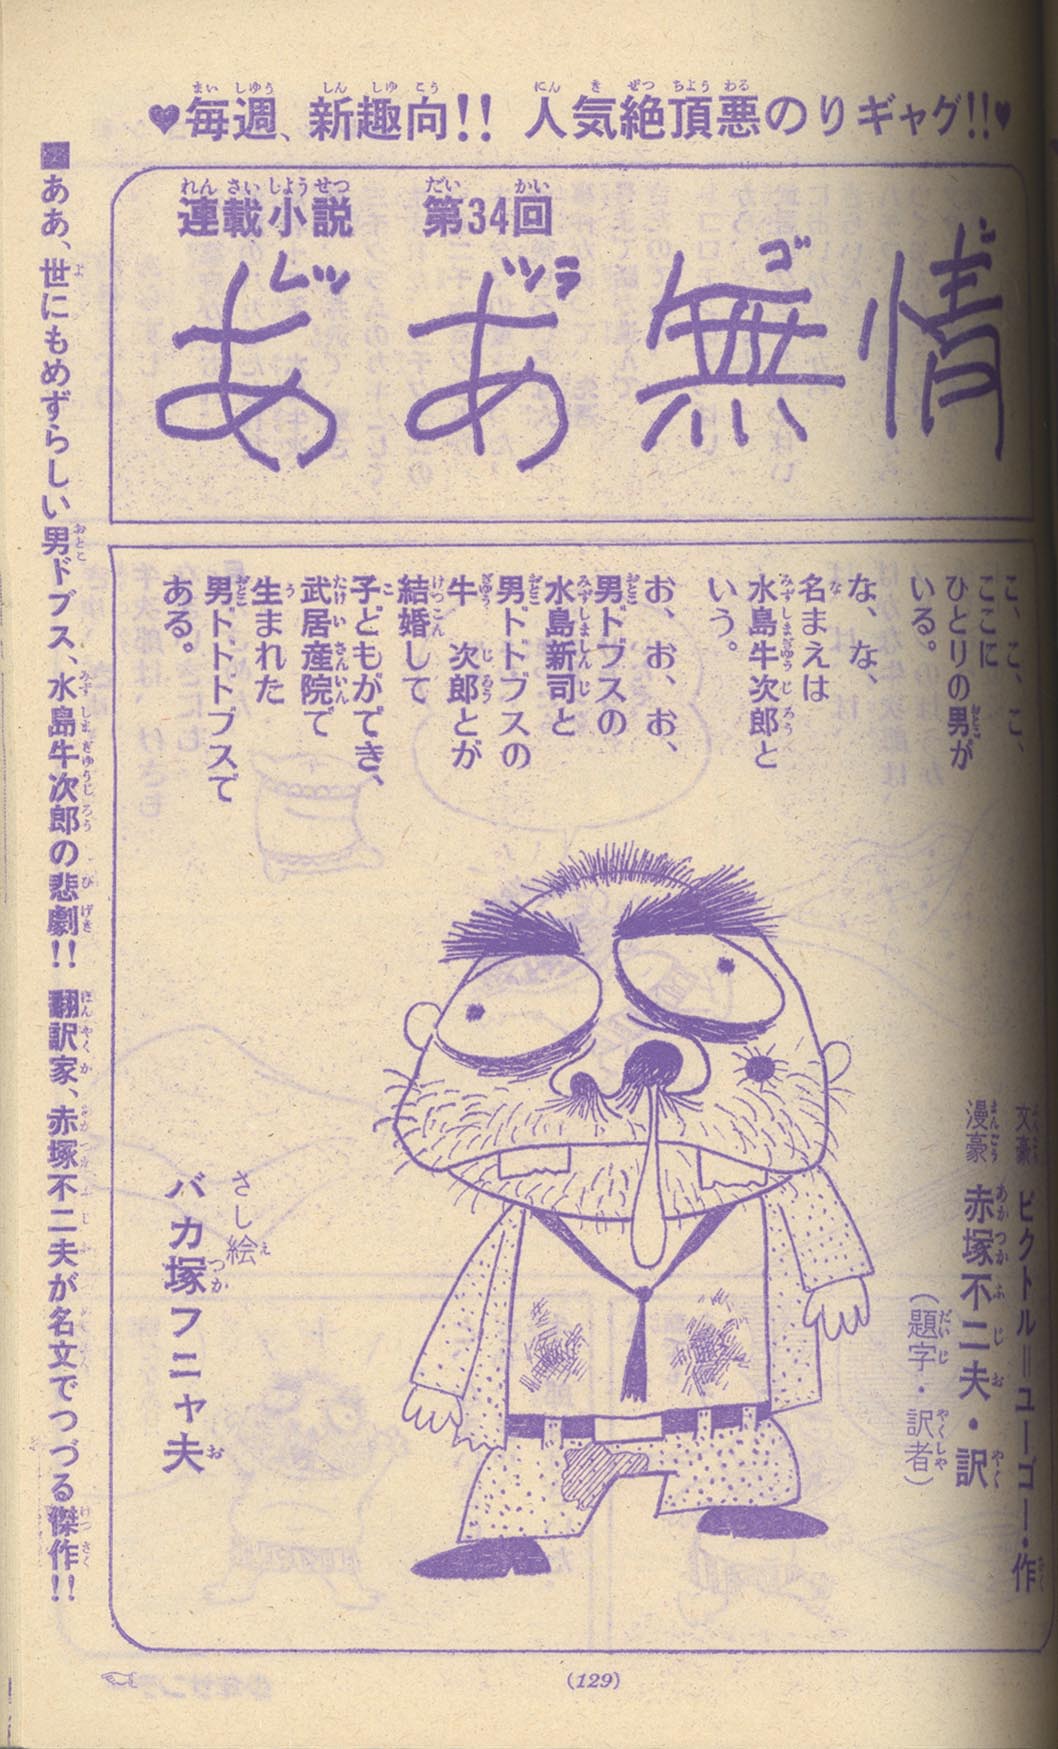 ♥毎週、新趣向!! 人気絶頂悪のりギャグ!!♥
連載小説 第34回
ああ無情
レツ ツラ ゴ
こ、こ、こ、
ここに
ひとりの男が
いる。
な、な、
名まえは
水島牛次郎と
いう。
お、お、お、
男ドブスの
水島新司と
男ドドブスの
牛 次郎とが
結婚して
子どもができ、
武居産院で
生まれた
男ドドドブスで
ある。
文豪 ビクトル=ユーゴー・作
漫豪 赤塚不二夫・訳
(題字・訳者)
さし絵
バカ塚フニャ夫
■ああ、世にもめずらしい男ドブス、水島牛次郎の悲劇!! 翻訳家、赤塚不二夫が名文でつづる傑作!!
(129)